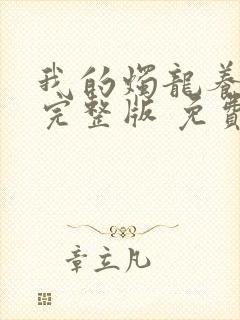 我的燭龍養
完整版 免費
章立凡